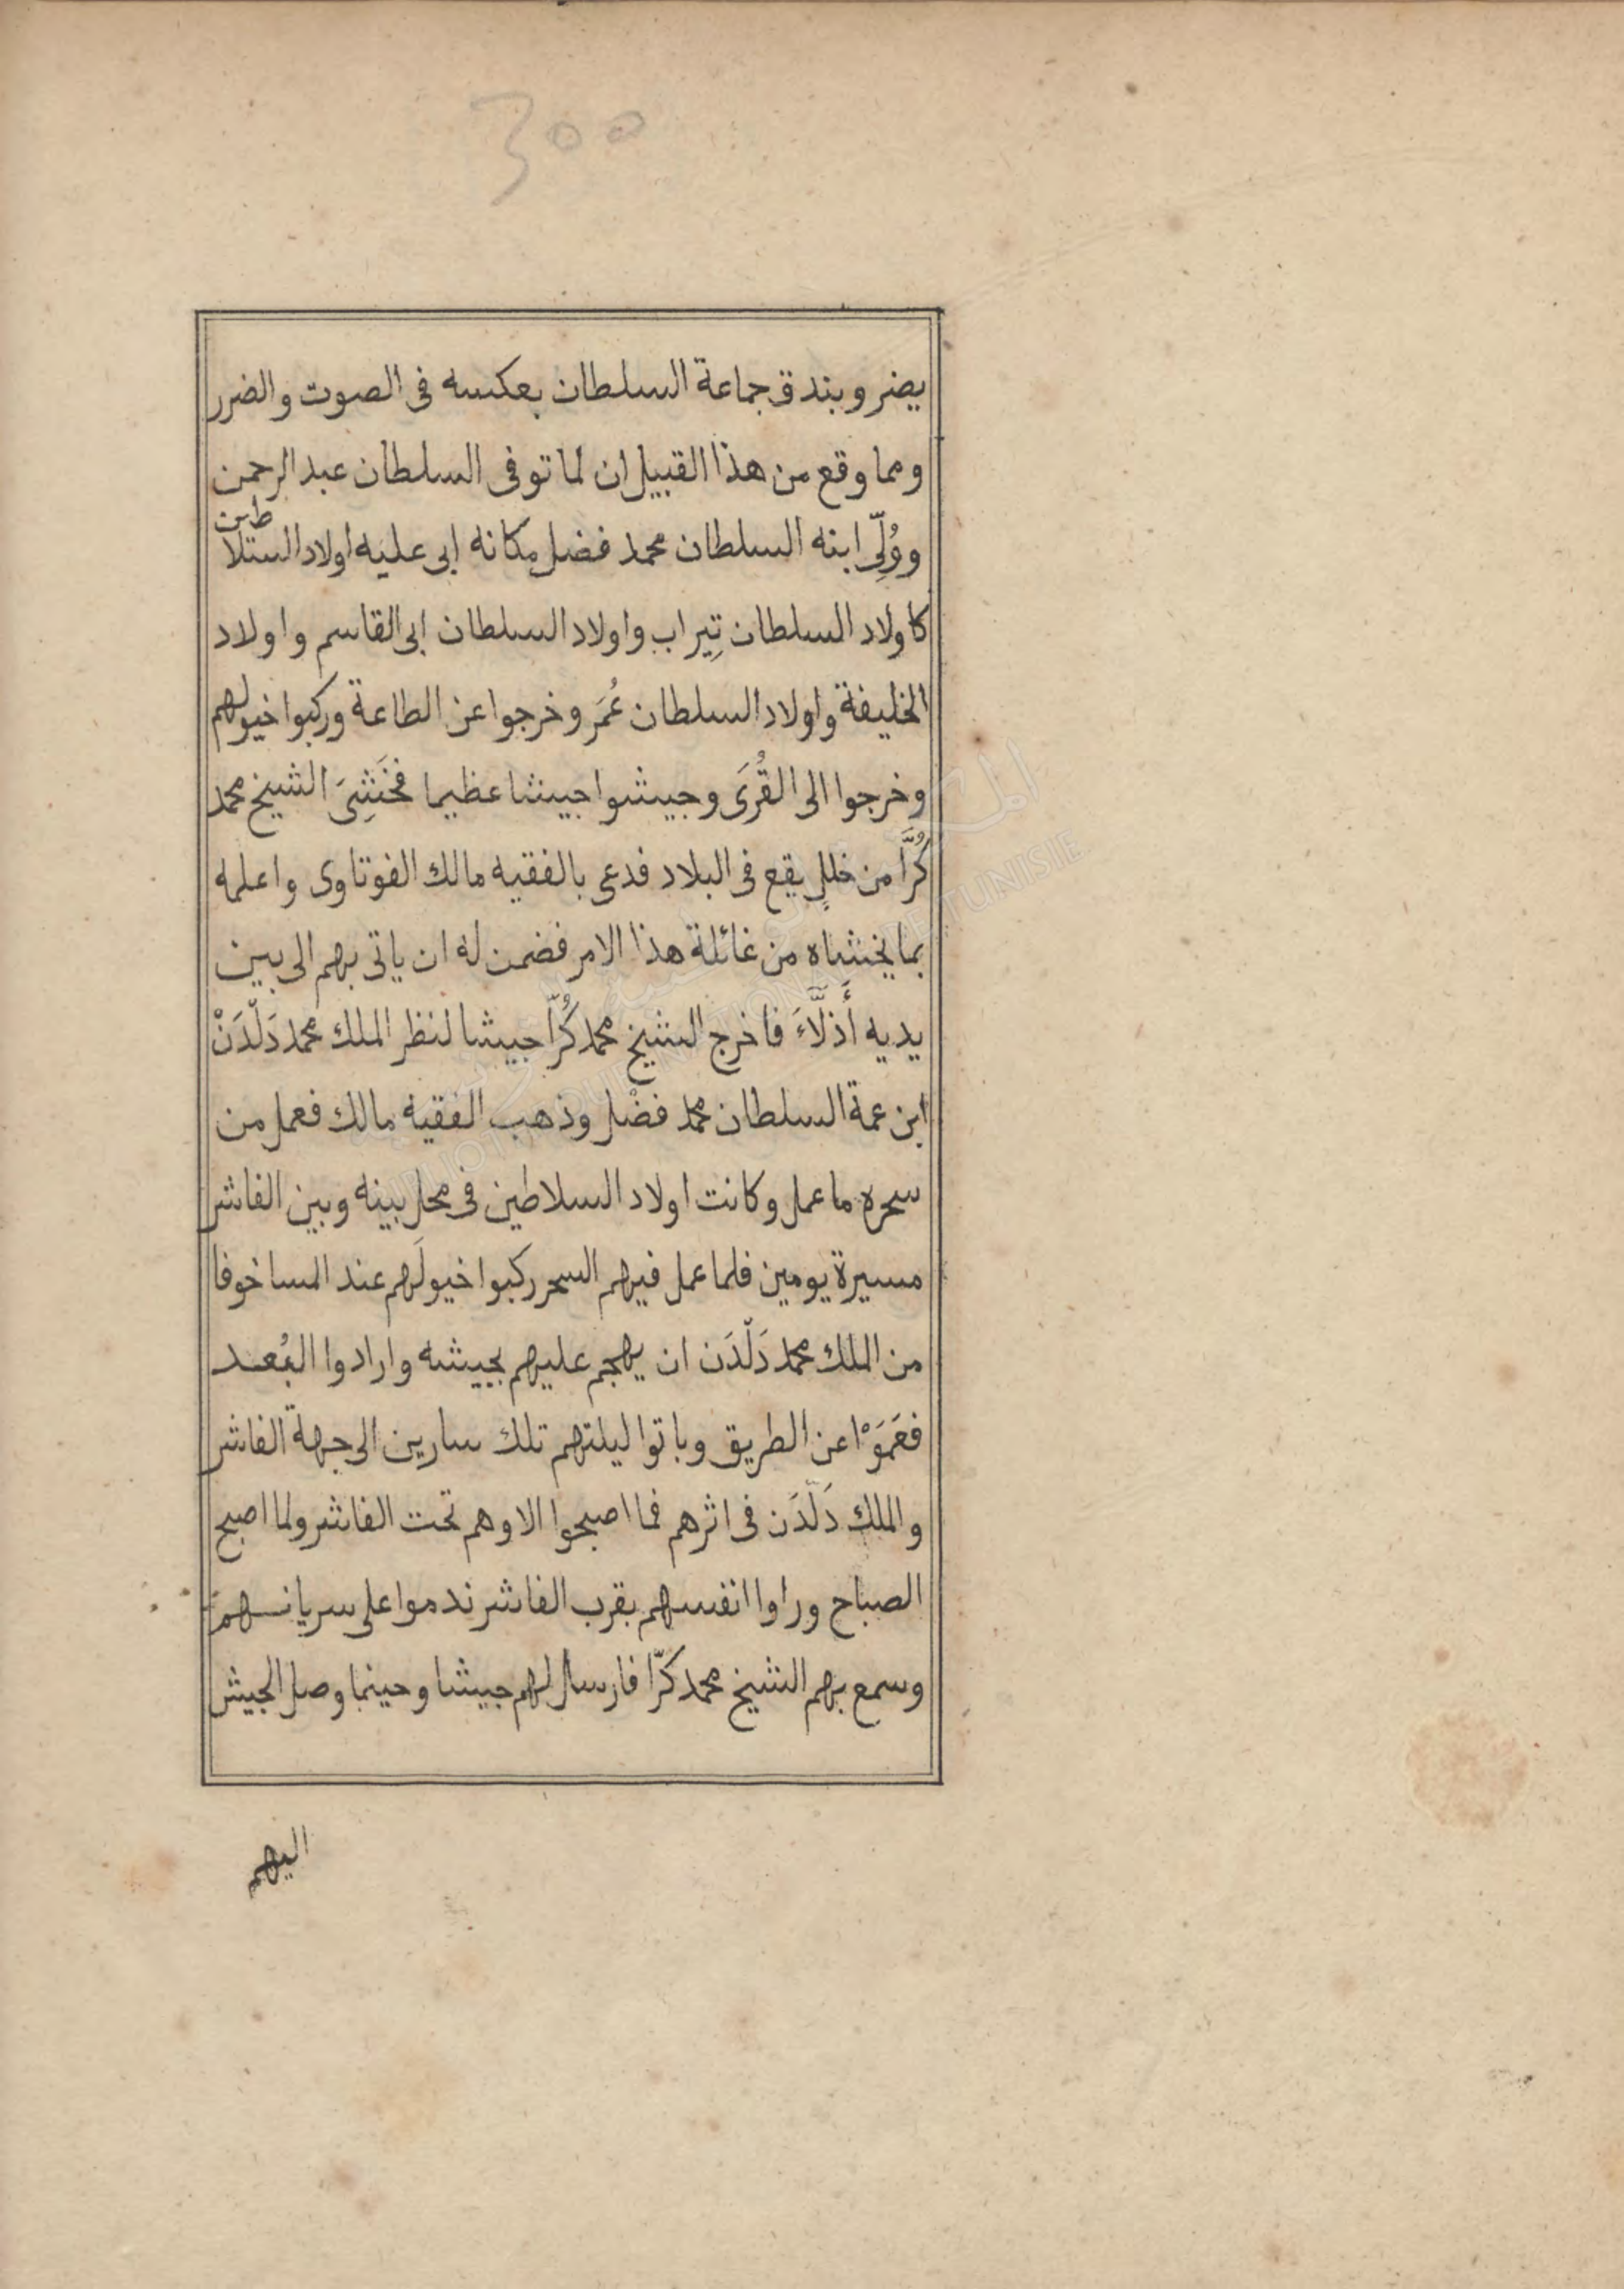 300
يضر وبندق جماعة السلطان بعكسه فى الصوت والضرر
ومما وقع من هذا القبيل ان لما توفى السلطان عبد الرحمن
ووُلِّى ابنه السلطان محمد فضل مكانه ابى عليه اولاد السلاطين
كاولاد السلطان تِيراب واولاد السلطان ابى القاسم واولاد
الخليفة واولاد السلطان عُمَر وخرجوا عن الطاعة وركبوا خيولهم
وخرجوا الى القُرَى وجيشوا جيشا عظيما فخَشِىَ الشيخ محمد
كُرَّا من خللٍ يقع فى البلاد فدعى بالفقيه مالك الفوتاوى واعلمه
بما يخشاه من غائلة هذا الامر فضمن له ان ياتى بهم الى بين
يديه أَذلَّاءَ فاخرج الشيخ محمد كُرّا جيشا لنظر الملك محمد دَلْدَنْ
ابن عمة السلطان محمد فضْل وذهب الفقيه مالك فعمل من
سحره ما عمل وكانت اولاد السلاطين فى محل بينه وبين الفاشر
مسيرة يومين فلما عمل فيهم السحر ركبوا خيولَهم عند المسا خوفا
من الملك محمد دَلْدَن ان يهجم عليهم بجيشه وارادوا البُعد
فعَمَوْا عن الطريق وباتوا ليلتهم تلك سارين الى جهة الفاشر
والملك دَلْدَن فى اثرهم فما اصبحوا الا وهم تحت الفاشر ولما اصبح
الصباح وراوا انفسهم بقرب الفاشر ندموا على سريانهم
وسمع بهم الشيخ محمد كرّا فارسل لهم جيشا وحينما وصل الجيش
اليهم
BIBLIOTHEQUE NATIONALE DE TUNISIE